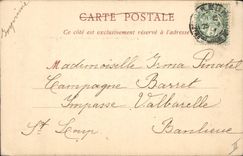 CARTE POSTALE
Ce côté est exclusivement réservé à l'adresse
Imprimé
Mademoiselle Irma Pinatel
Campagne Barret
Impasse Valbarelle
St Loup
Banlieue